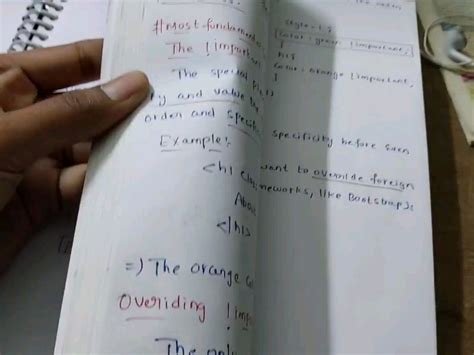 #most fundamen
The !importan
The special
ty and value
order and specifi
Example:
<h1 cla
Abou
</h1>
=) The orange co
Overiding !impo
The onl
style-1 {
color: green !important;
}
h1 {
color: orange !important,
}
specificity before even
want to override foreign
meworks, like Bootstrap):